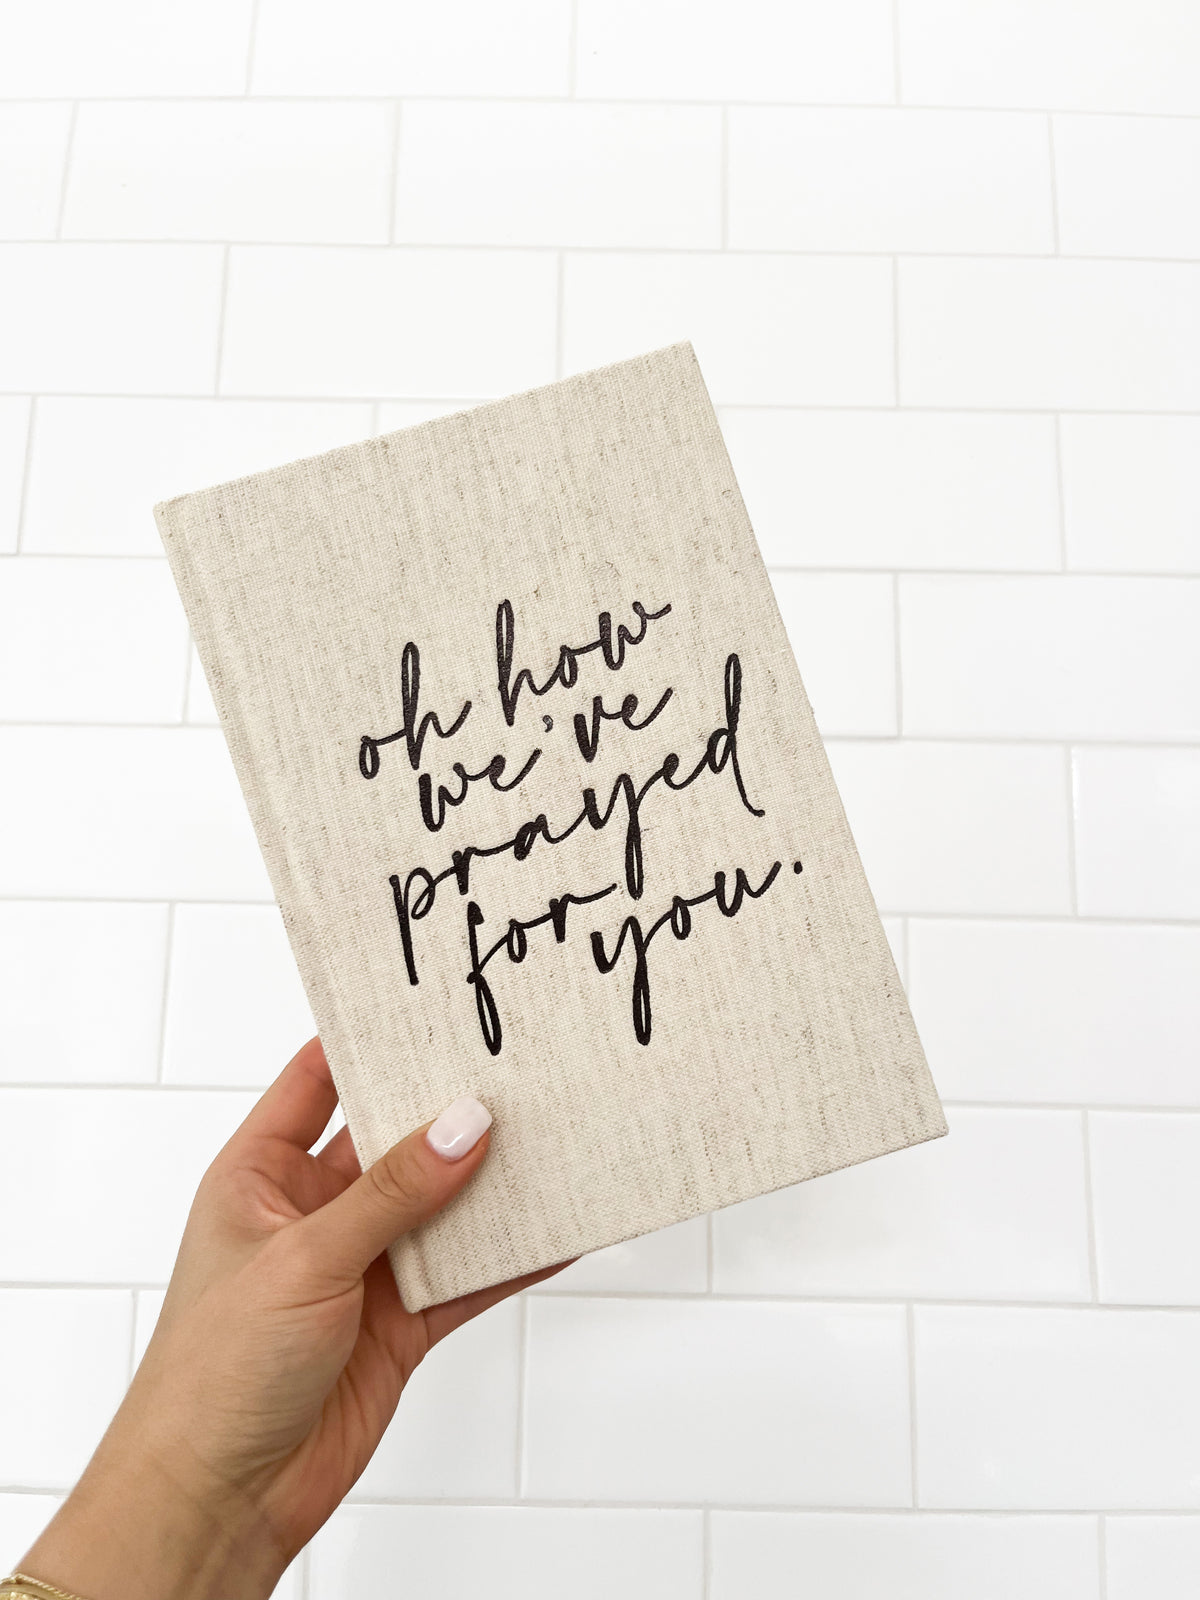 oh how
we've
prayed
for you.